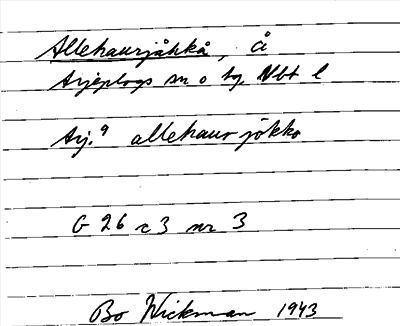 Allehaurjåhkå, å
Arjeplogs sn o tg, Nbt l
Arj.9 allehaur jåkko
G 26 c 3 nr 3
Bo Wickman 1943